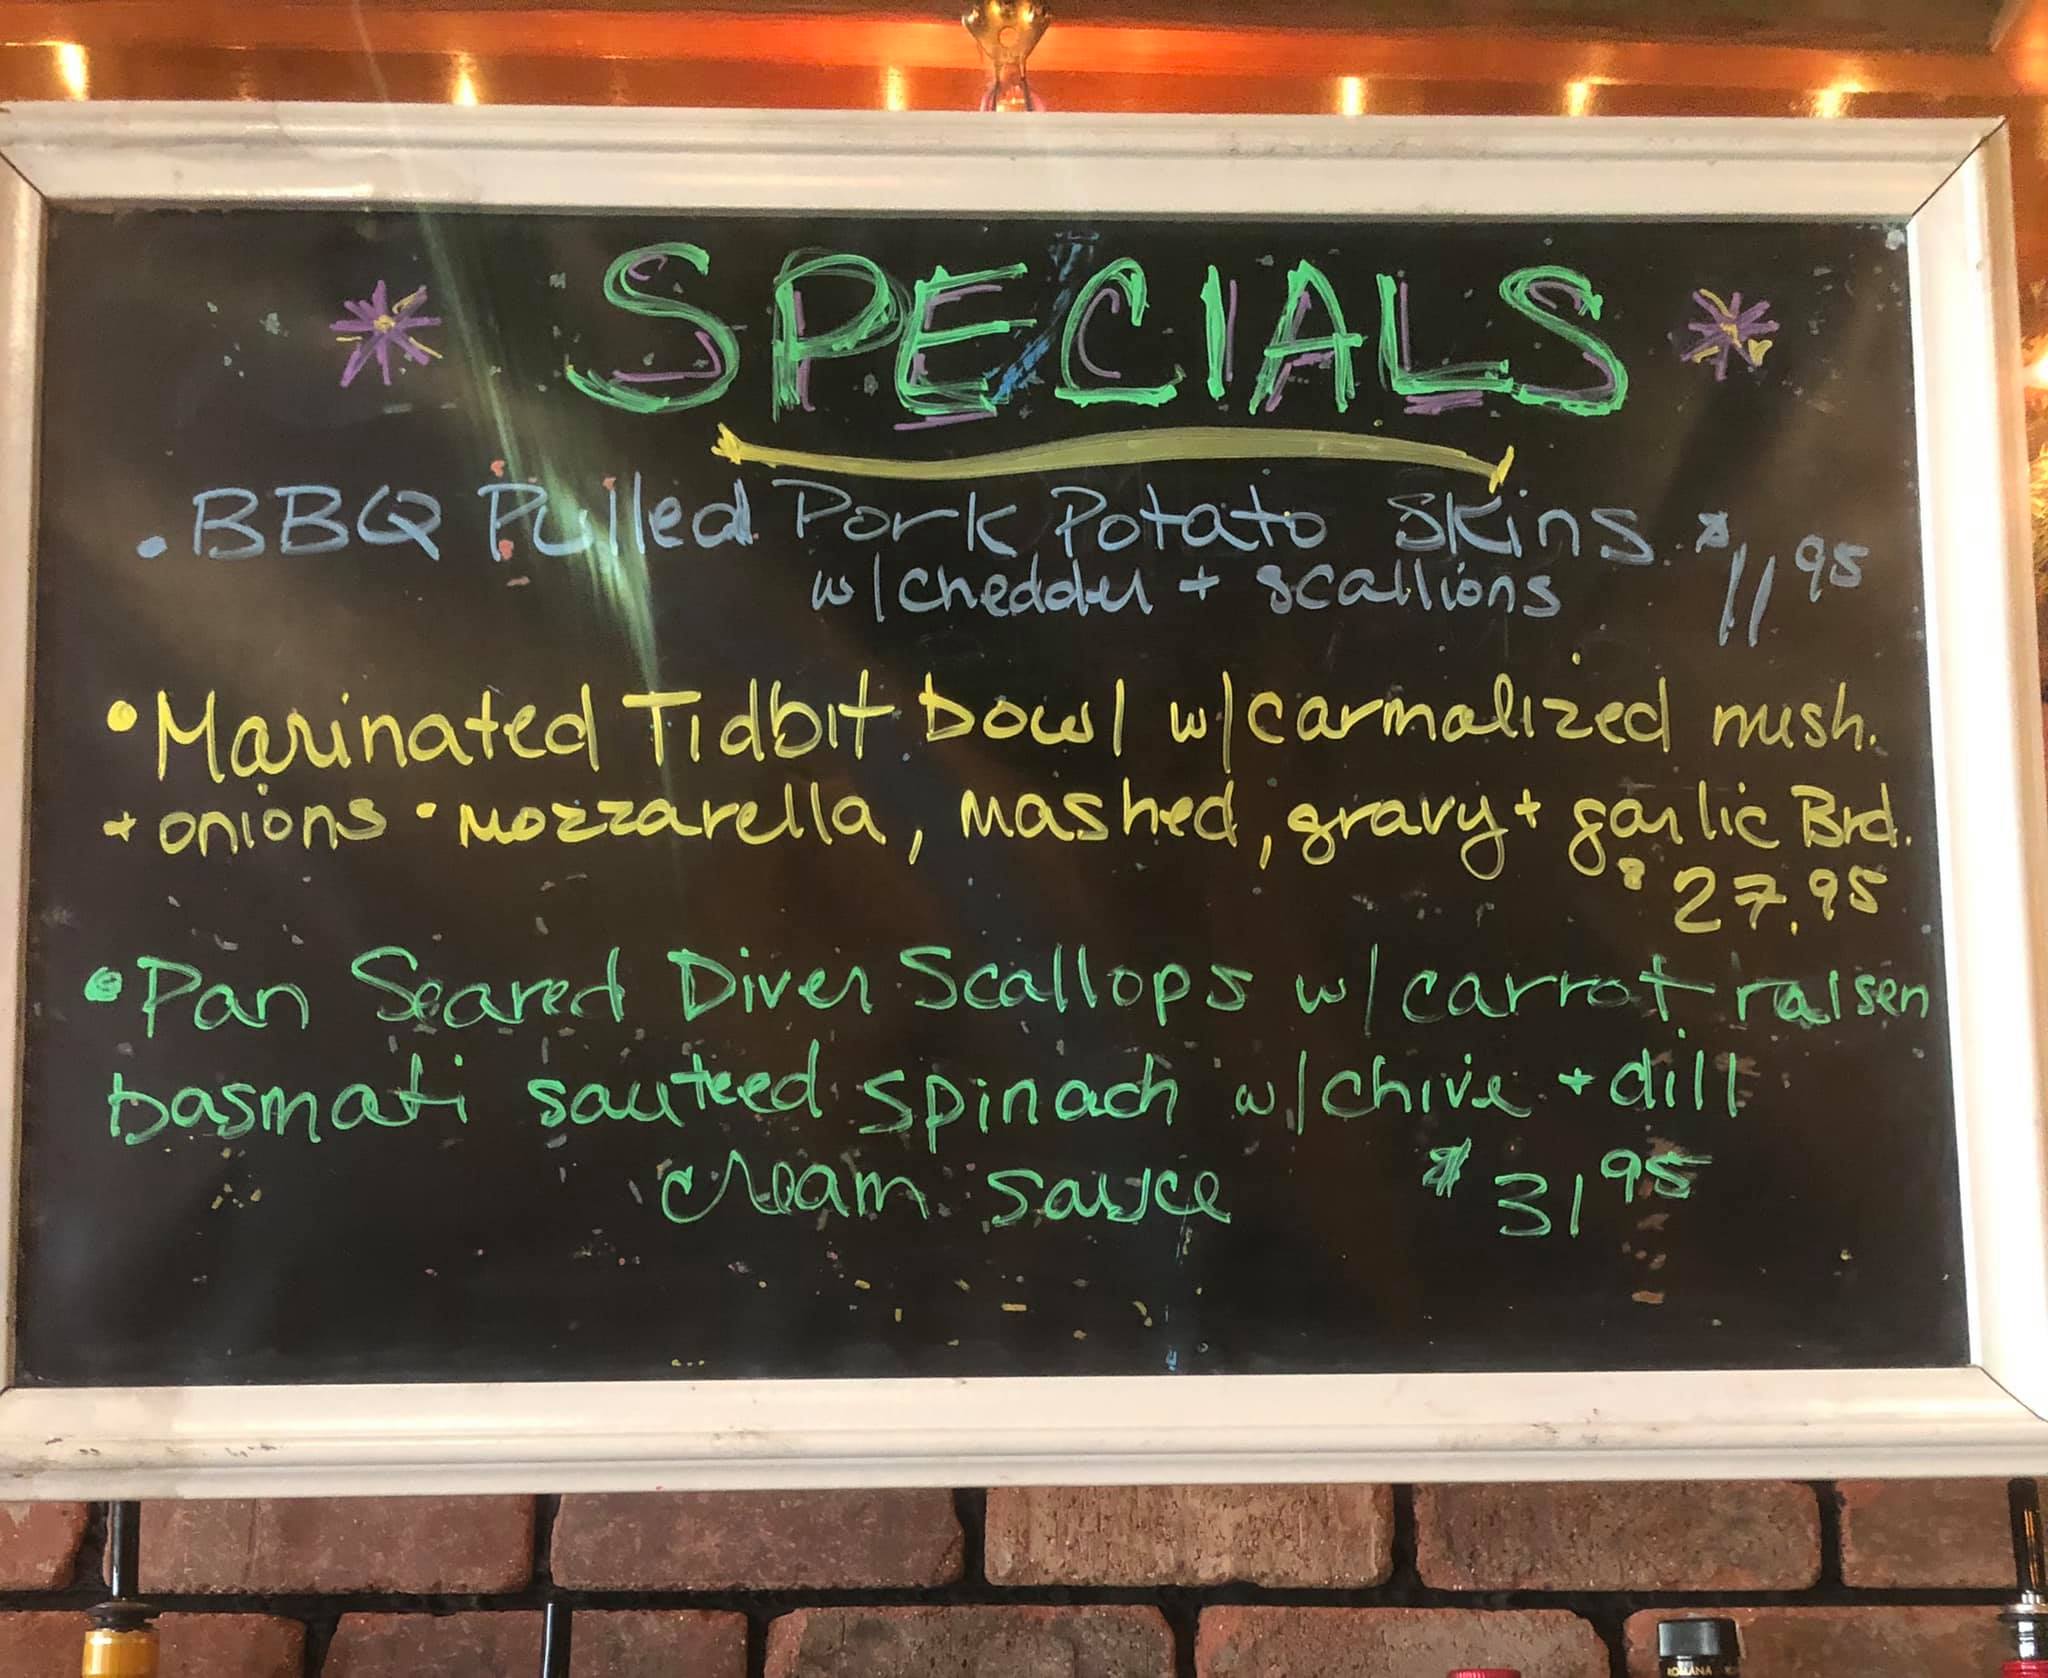 SPECIALS
• BBQ Pulled Pork Potato Skins $11.95
w/cheddar + scallions
• Marinated Tidbit bowl w/carmalized mush.
+ onions • mozzarella, mashed, gravy + garlic Brd.
$27.95
• Pan Seared Diver Scallops w/carrot raisen
basmati sauteed spinach w/chive + dill
cream sauce $31.95
ROMANA